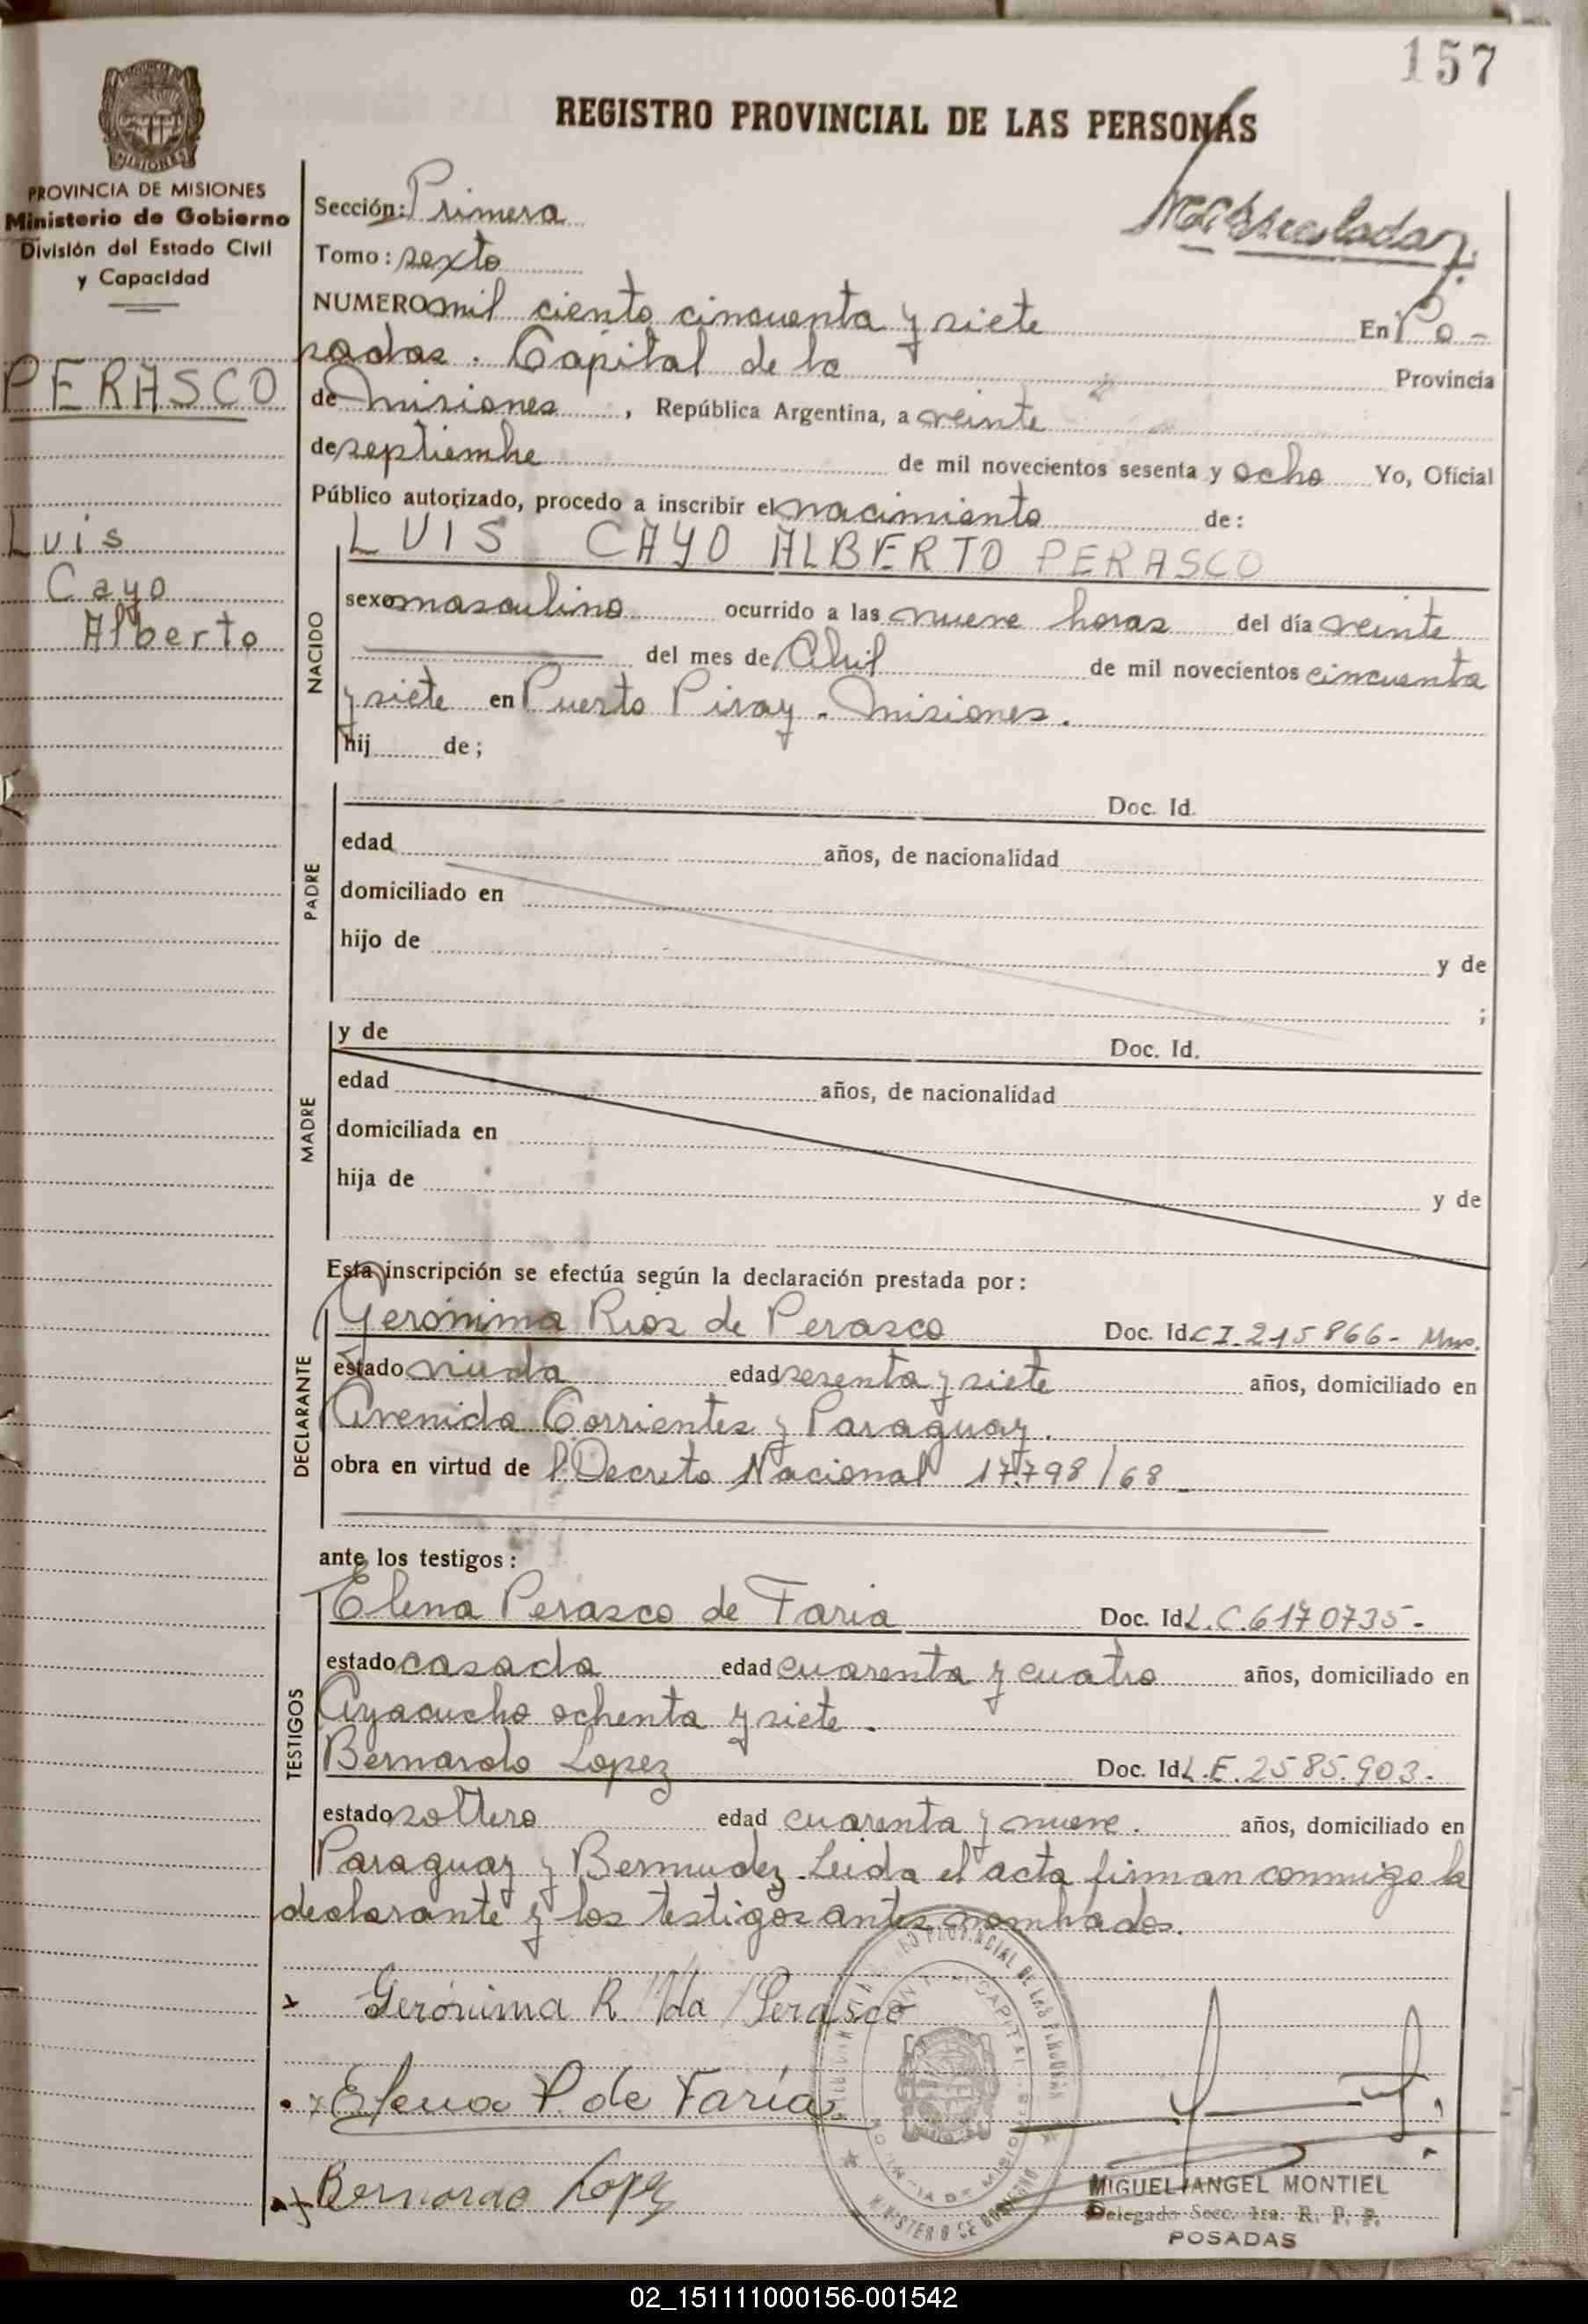 157
REGISTRO PROVINCIAL DE LAS PERSONAS
MISIONES
PROVINCIA DE MISIONES
Ministerio de Gobierno
División del Estado Civil
y Capacidad
PERASCO
Luis
Cayo
Alberto
Sección: Primera
Tomo: sexto
NUMERO mil ciento cincuenta y siete En Po-
sadas. Capital de la Provincia
de Misiones, República Argentina, a veinte
de septiembre de mil novecientos sesenta y ocho Yo, Oficial
Público autorizado, procedo a inscribir el nacimiento de:
LUIS CAYO ALBERTO PERASCO
NACIDO
sexo masculino ocurrido a las nueve horas del día veinte
del mes de Abril de mil novecientos cincuenta
y siete en Puerto Piray - Misiones.
hij de;
PADRE
Doc. Id.
edad años, de nacionalidad
domiciliado en
hijo de y de
;
MADRE
y de Doc. Id.
edad años, de nacionalidad
domiciliada en
hija de y de
Esta inscripción se efectúa según la declaración prestada por:
DECLARANTE
Gerónima Rios de Perasco Doc. Id. C.I. 215866- Mnes.
estado viuda edad sesenta y siete años, domiciliado en
Avenida Corrientes y Paraguay.
obra en virtud de l Decreto Nacional 17.798/68
ante los testigos:
TESTIGOS
Elena Perasco de Faria Doc. Id. L.C. 6170735-
estado casada edad cuarenta y cuatro años, domiciliado en
Ayacucho ochenta y siete.
Bernardo Lopez Doc. Id. L.E. 2585.903.
estado soltero edad cuarenta y nueve. años, domiciliado en
Paraguay y Bermudez. Leida el acta firman conmigo la
declarante y los testigos antes nombrados.
Gerónima R. Vda Perasco
Elena P. de Faría
Bernardo Lopez
MIGUEL ANGEL MONTIEL
Delegado Secc. 1ra. R. P. P.
POSADAS
02_151111000156-001542